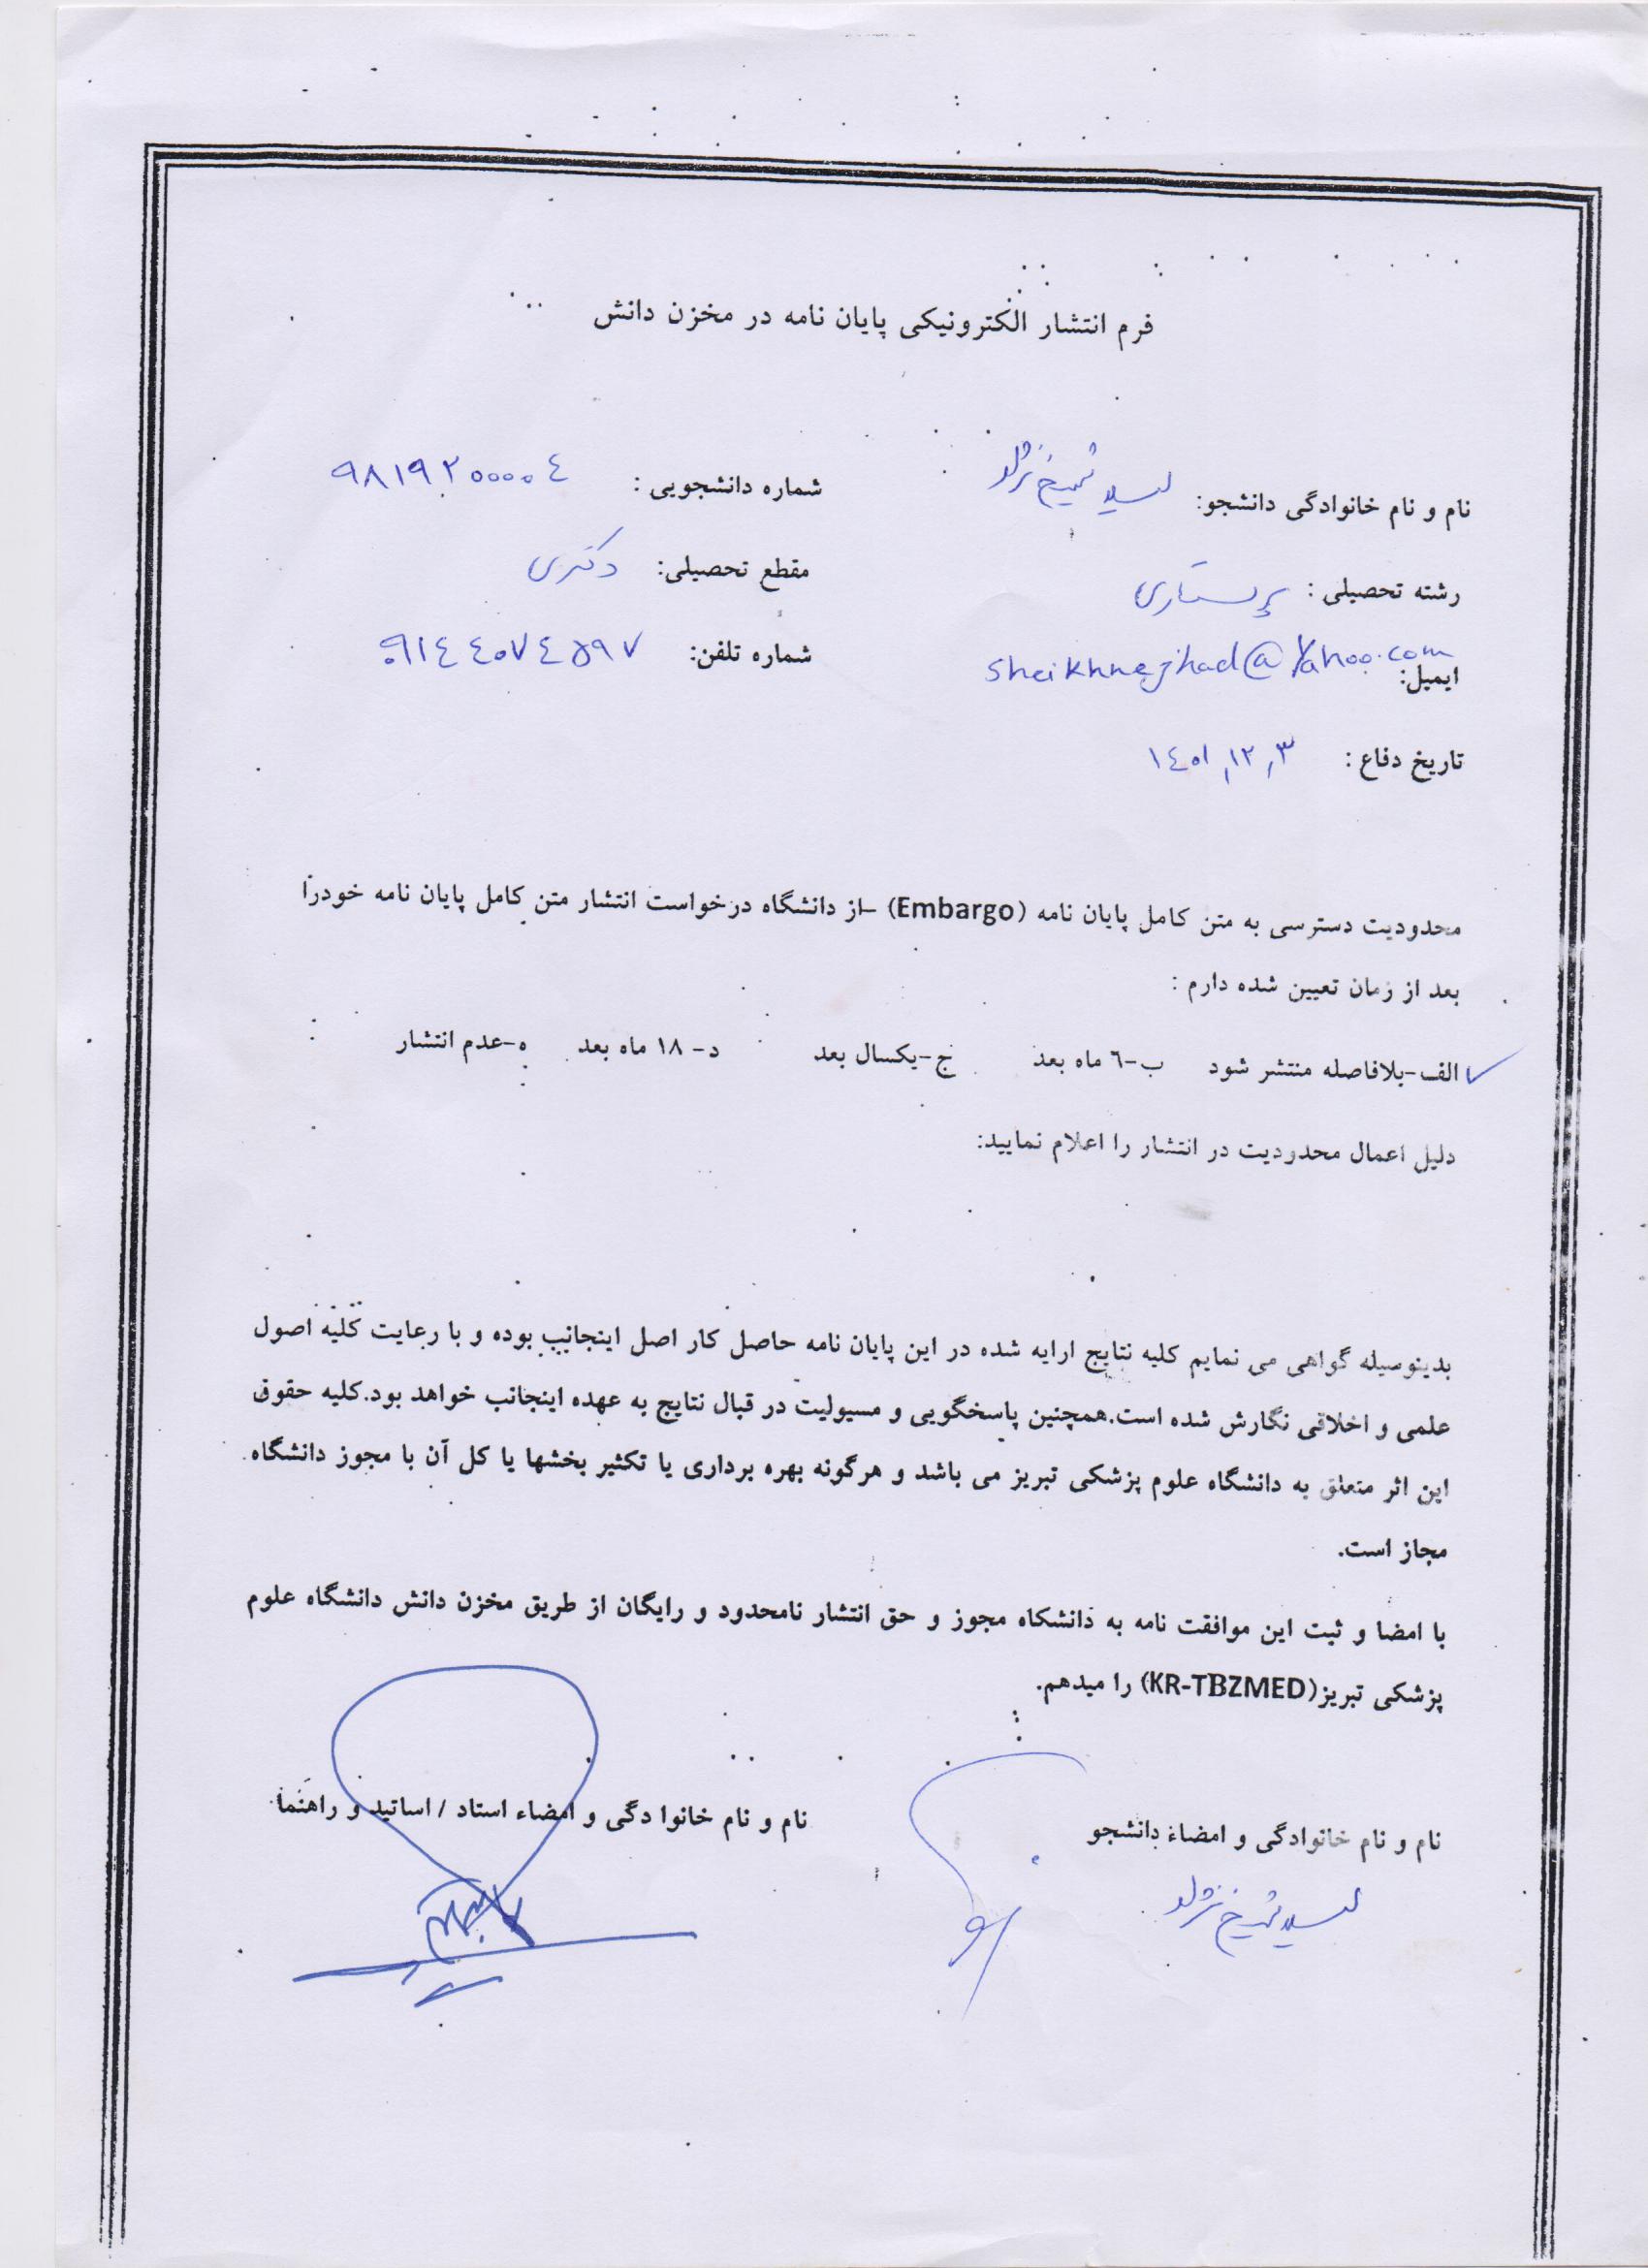 فرم انتشار الکترونیکی پایان نامه در مخزن دانش
نام و نام خانوادگی دانشجو: شیخ نژاد شماره دانشجویی : ٩٨١٩٢٠٠٠٠٤
رشته تحصیلی : پرستاری مقطع تحصیلی: دکتری
ایمیل: sheikhnezhad@Yahoo.com شماره تلفن: ٠٩١٤٤٠٧٤٥٩٧
تاریخ دفاع : ١٤٠١,١٢,٣
محدودیت دسترسی به متن کامل پایان نامه (Embargo) –از دانشگاه درخواست انتشار متن کامل پایان نامه خودرا
بعد از زمان تعیین شده دارم :
✓ الف-بلافاصله منتشر شود ب-٦ ماه بعد ج-یکسال بعد د- ١٨ ماه بعد ه-عدم انتشار
دلیل اعمال محدودیت در انتشار را اعلام نمایید:
بدینوسیله گواهی می نمایم کلیه نتایج ارایه شده در این پایان نامه حاصل کار اصل اینجانب بوده و با رعایت کلیه اصول
علمی و اخلاقی نگارش شده است.همچنین پاسخگویی و مسیولیت در قبال نتایج به عهده اینجانب خواهد بود.کلیه حقوق
این اثر متعلق به دانشگاه علوم پزشکی تبریز می باشد و هرگونه بهره برداری یا تکثیر بخشها یا کل آن با مجوز دانشگاه
مجاز است.
با امضا و ثبت این موافقت نامه به دانشکاه مجوز و حق انتشار نامحدود و رایگان از طریق مخزن دانش دانشگاه علوم
پزشکی تبریز(KR-TBZMED) را میدهم.
نام و نام خانوادگی و امضاء دانشجو نام و نام خانوا دگی و امضاء استاد / اساتید و راهنما
شیخ نژاد